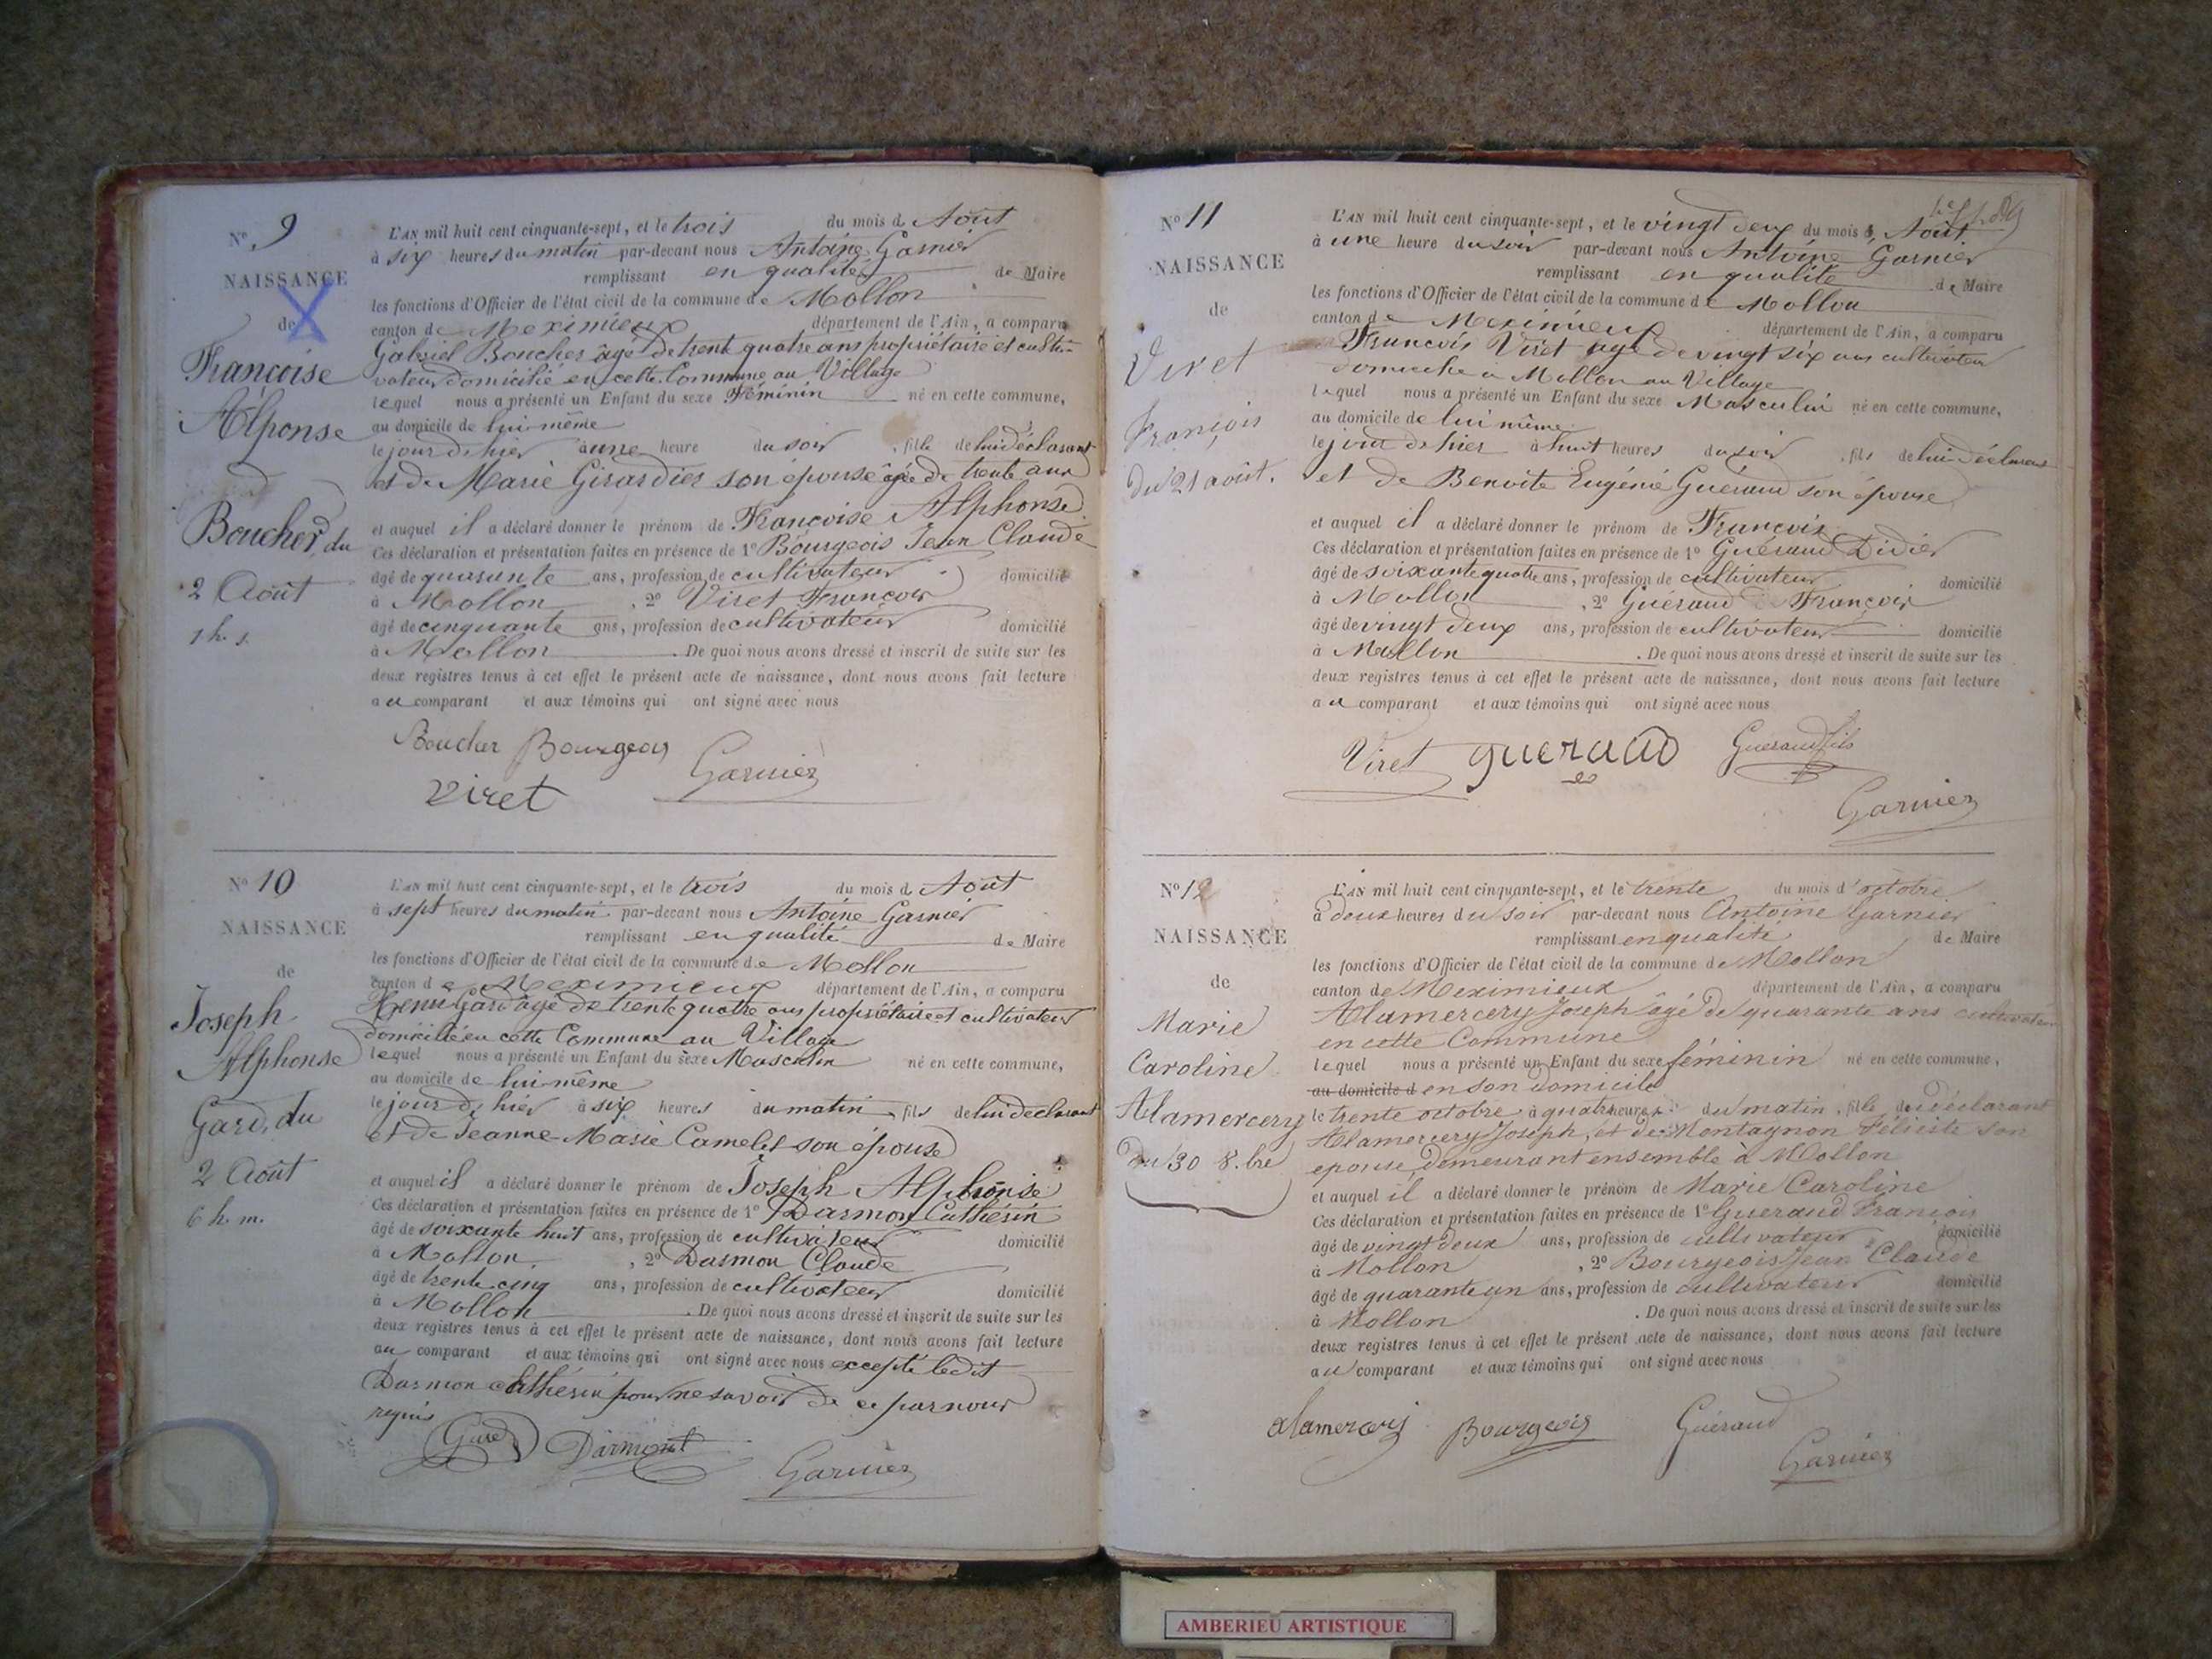 Nº 9
NAISSANCE
de
Françoise
Alponse
Boucher, du
2 Août
1 h. s.
L'AN mil huit cent cinquante-sept, et le trois du mois d Août
à six heures du matin par-devant nous Antoine Garnier
remplissant en qualité de Maire
les fonctions d'Officier de l'état civil de la commune de Mollon
canton de Meximieux département de l'Ain, a comparu
Gabriel Boucher âgé de trent quatre ans propriétaire et culti-
vateur domicilié en cette Commune au Village
lequel nous a présenté un Enfant du sexe Féminin né en cette commune,
au domicile de lui-même
le jour d'hier à une heure du soir, fille de lui déclarant
et de Marie Girardier son épouse âgée de trente ans
et auquel il a déclaré donner le prénom de Françoise Alphonse
Ces déclaration et présentation faites en présence de 1º Bourgeois Jean Claude
âgé de quarante ans, profession de cultivateur domicilié
à Mollon, 2º Viret François
âgé de cinquante ans, profession de cultivateur domicilié
à Mollon. De quoi nous avons dressé et inscrit de suite sur les
deux registres tenus à cet effet le présent acte de naissance, dont nous avons fait lecture
au comparant et aux témoins qui ont signé avec nous
Boucher Bourgeois
Viret Garnier
Nº 10
NAISSANCE
de
Joseph
Alphonse
Gard, du
2 Août
6 h. m.
L'AN mil huit cent cinquante-sept, et le trois du mois d Août
à sept heures du matin par-devant nous Antoine Garnier
remplissant en qualité de Maire
les fonctions d'Officier de l'état civil de la commune de Mollon
canton de Meximieux département de l'Ain, a comparu
Henri Gard âgé de trente quatre ans propriétaire et cultivateur
domicilié en cette Commune au Village
lequel nous a présenté un Enfant du sexe Masculin né en cette commune,
au domicile de lui-même
le jour d'hier à six heures du matin, fils de lui déclarant
et de Jeanne-Marie Camelet son épouse
et auquel il a déclaré donner le prénom de Joseph Alphonse
Ces déclaration et présentation faites en présence de 1º Darmon Cathérin
âgé de soixante huit ans, profession de cultivateur domicilié
à Mollon, 2º Darmon Claude
âgé de trente cinq ans, profession de cultivateur domicilié
à Mollon. De quoi nous avons dressé et inscrit de suite sur les
deux registres tenus à cet effet le présent acte de naissance, dont nous avons fait lecture
au comparant et aux témoins qui ont signé avec nous excepté ledit
Darmon Cathérin pour ne savoir de ce par nous
requis
Gard Darmont Garnier
Nº 11
NAISSANCE
de
Viret
François
du 21 août.
L'AN mil huit cent cinquante-sept, et le vingt deux du mois d Août
à une heure du soir par-devant nous Antoine Garnier
remplissant en qualité de Maire
les fonctions d'Officier de l'état civil de la commune de Mollon
canton de Meximieux département de l'Ain, a comparu
François Viret âgé de vingt six ans cultivateur
domicilié a Mollon au Village
lequel nous a présenté un Enfant du sexe Masculin né en cette commune,
au domicile de lui même
le jour de hier à huit heures du soir, fils de lui déclarant
et de Benoite Eugénie Guéraud son épouse
et auquel il a déclaré donner le prénom de François
Ces déclaration et présentation faites en présence de 1º Guéraud Didier
âgé de soixante quatre ans, profession de cultivateur domicilié
à Mollon, 2º Guéraud François
âgé de vingt deux ans, profession de cultivateur domicilié
à Mollon. De quoi nous avons dressé et inscrit de suite sur les
deux registres tenus à cet effet le présent acte de naissance, dont nous avons fait lecture
au comparant et aux témoins qui ont signé avec nous
Viret gueraud Gueraud fils
Garnier
Nº 12
NAISSANCE
de
Marie
Caroline
Alamercery
Du 30 8.bre
L'AN mil huit cent cinquante-sept, et le trente du mois d'octobre
à deux heures du soir par-devant nous Antoine Garnier
remplissant en qualité de Maire
les fonctions d'Officier de l'état civil de la commune de Mollon
canton de Meximieux département de l'Ain, a comparu
Alamercery Joseph âgé de quarante ans cultivateur
en cette Commune
lequel nous a présenté un Enfant du sexe féminin né en cette commune,
au domicile d en son domicile
le trente octobre à quatre heures du matin, fille du déclarant
Alamercery Joseph, et de Montagnon Félicité son
epouse, demeurant ensemble à Mollon
et auquel il a déclaré donner le prénom de Marie Caroline
Ces déclaration et présentation faites en présence de 1º Gueraud François
âgé de vingt deux ans, profession de cultivateur domicilié
à Mollon, 2º Bourgeois Jean Claude
âgé de quarante un ans, profession de cultivateur domicilié
à Mollon. De quoi nous avons dressé et inscrit de suite sur les
deux registres tenus à cet effet le présent acte de naissance, dont nous avons fait lecture
au comparant et aux témoins qui ont signé avec nous
alamercery Bourgeois Guéraud
Garnier
AMBERIEU ARTISTIQUE